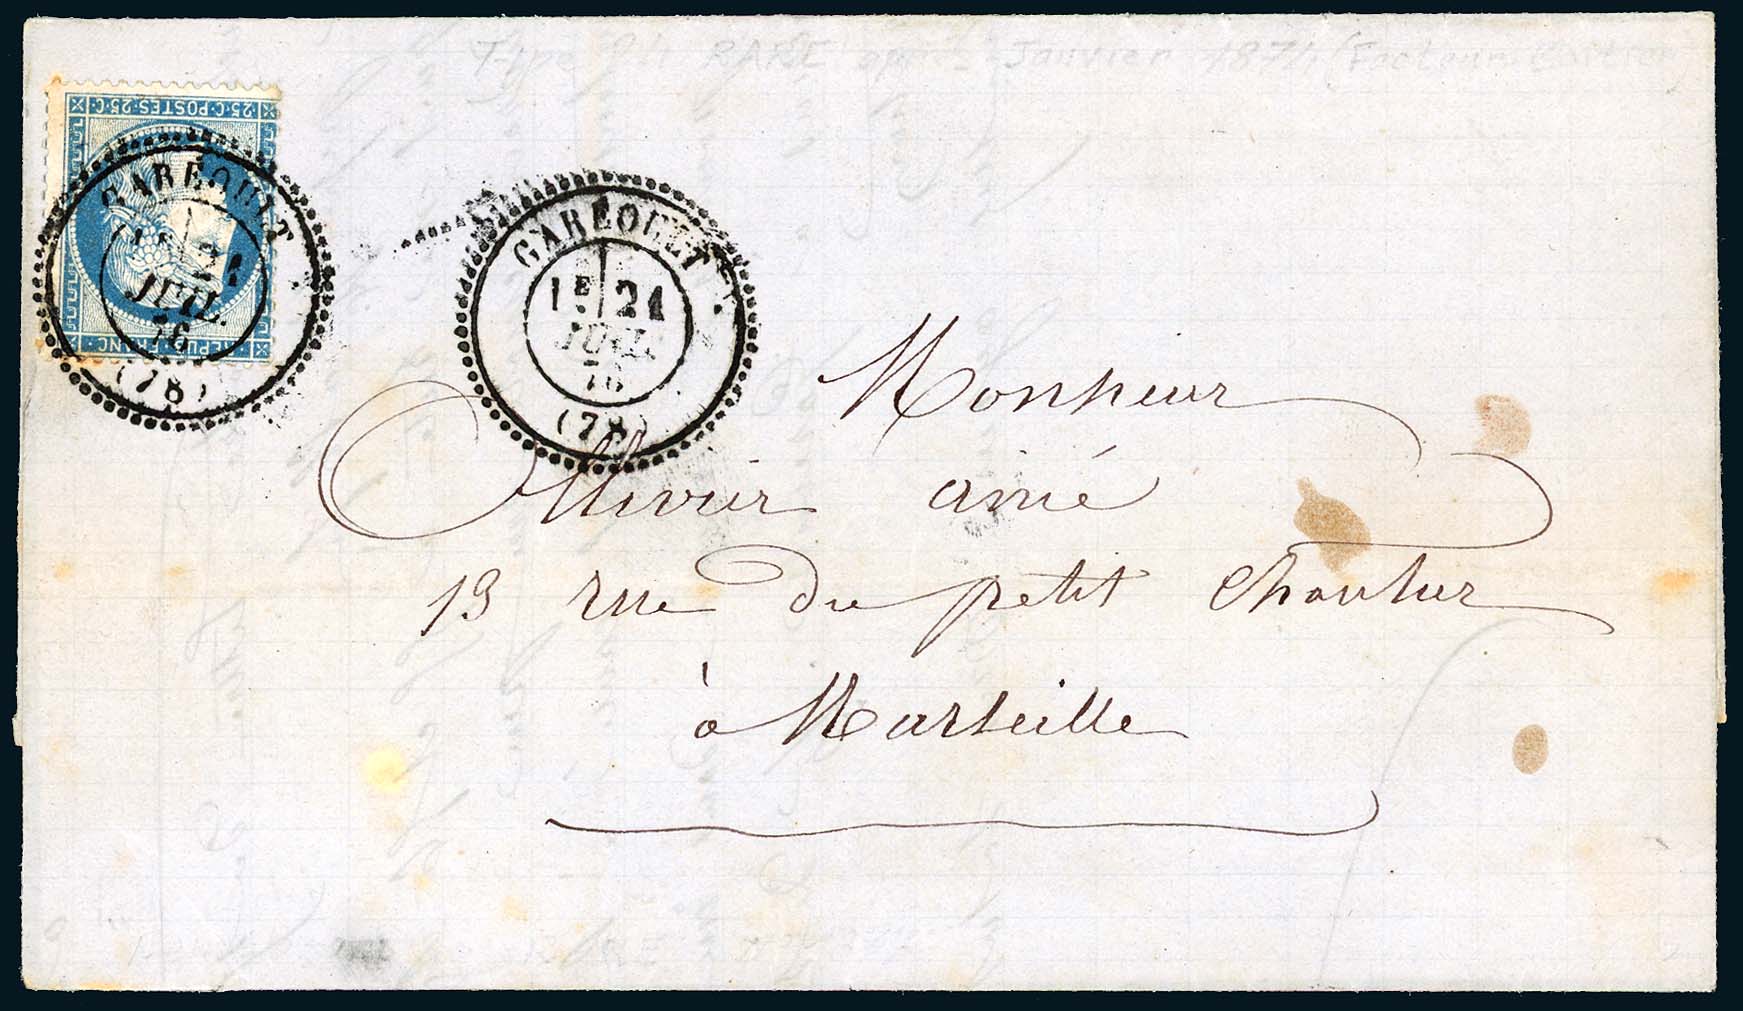 Type 24 RARE après Janvier 1874 (Facteur Boitier)
25·C·POSTES·25·C
REPUB·FRANC
GARÉOULT
1E 21
JUIL.
76
(78)
GARÉOULT
1E 21
JUIL.
76
(78)
Monsieur
Ollivier ainé
13 rue du petit Chantier
à Marseille